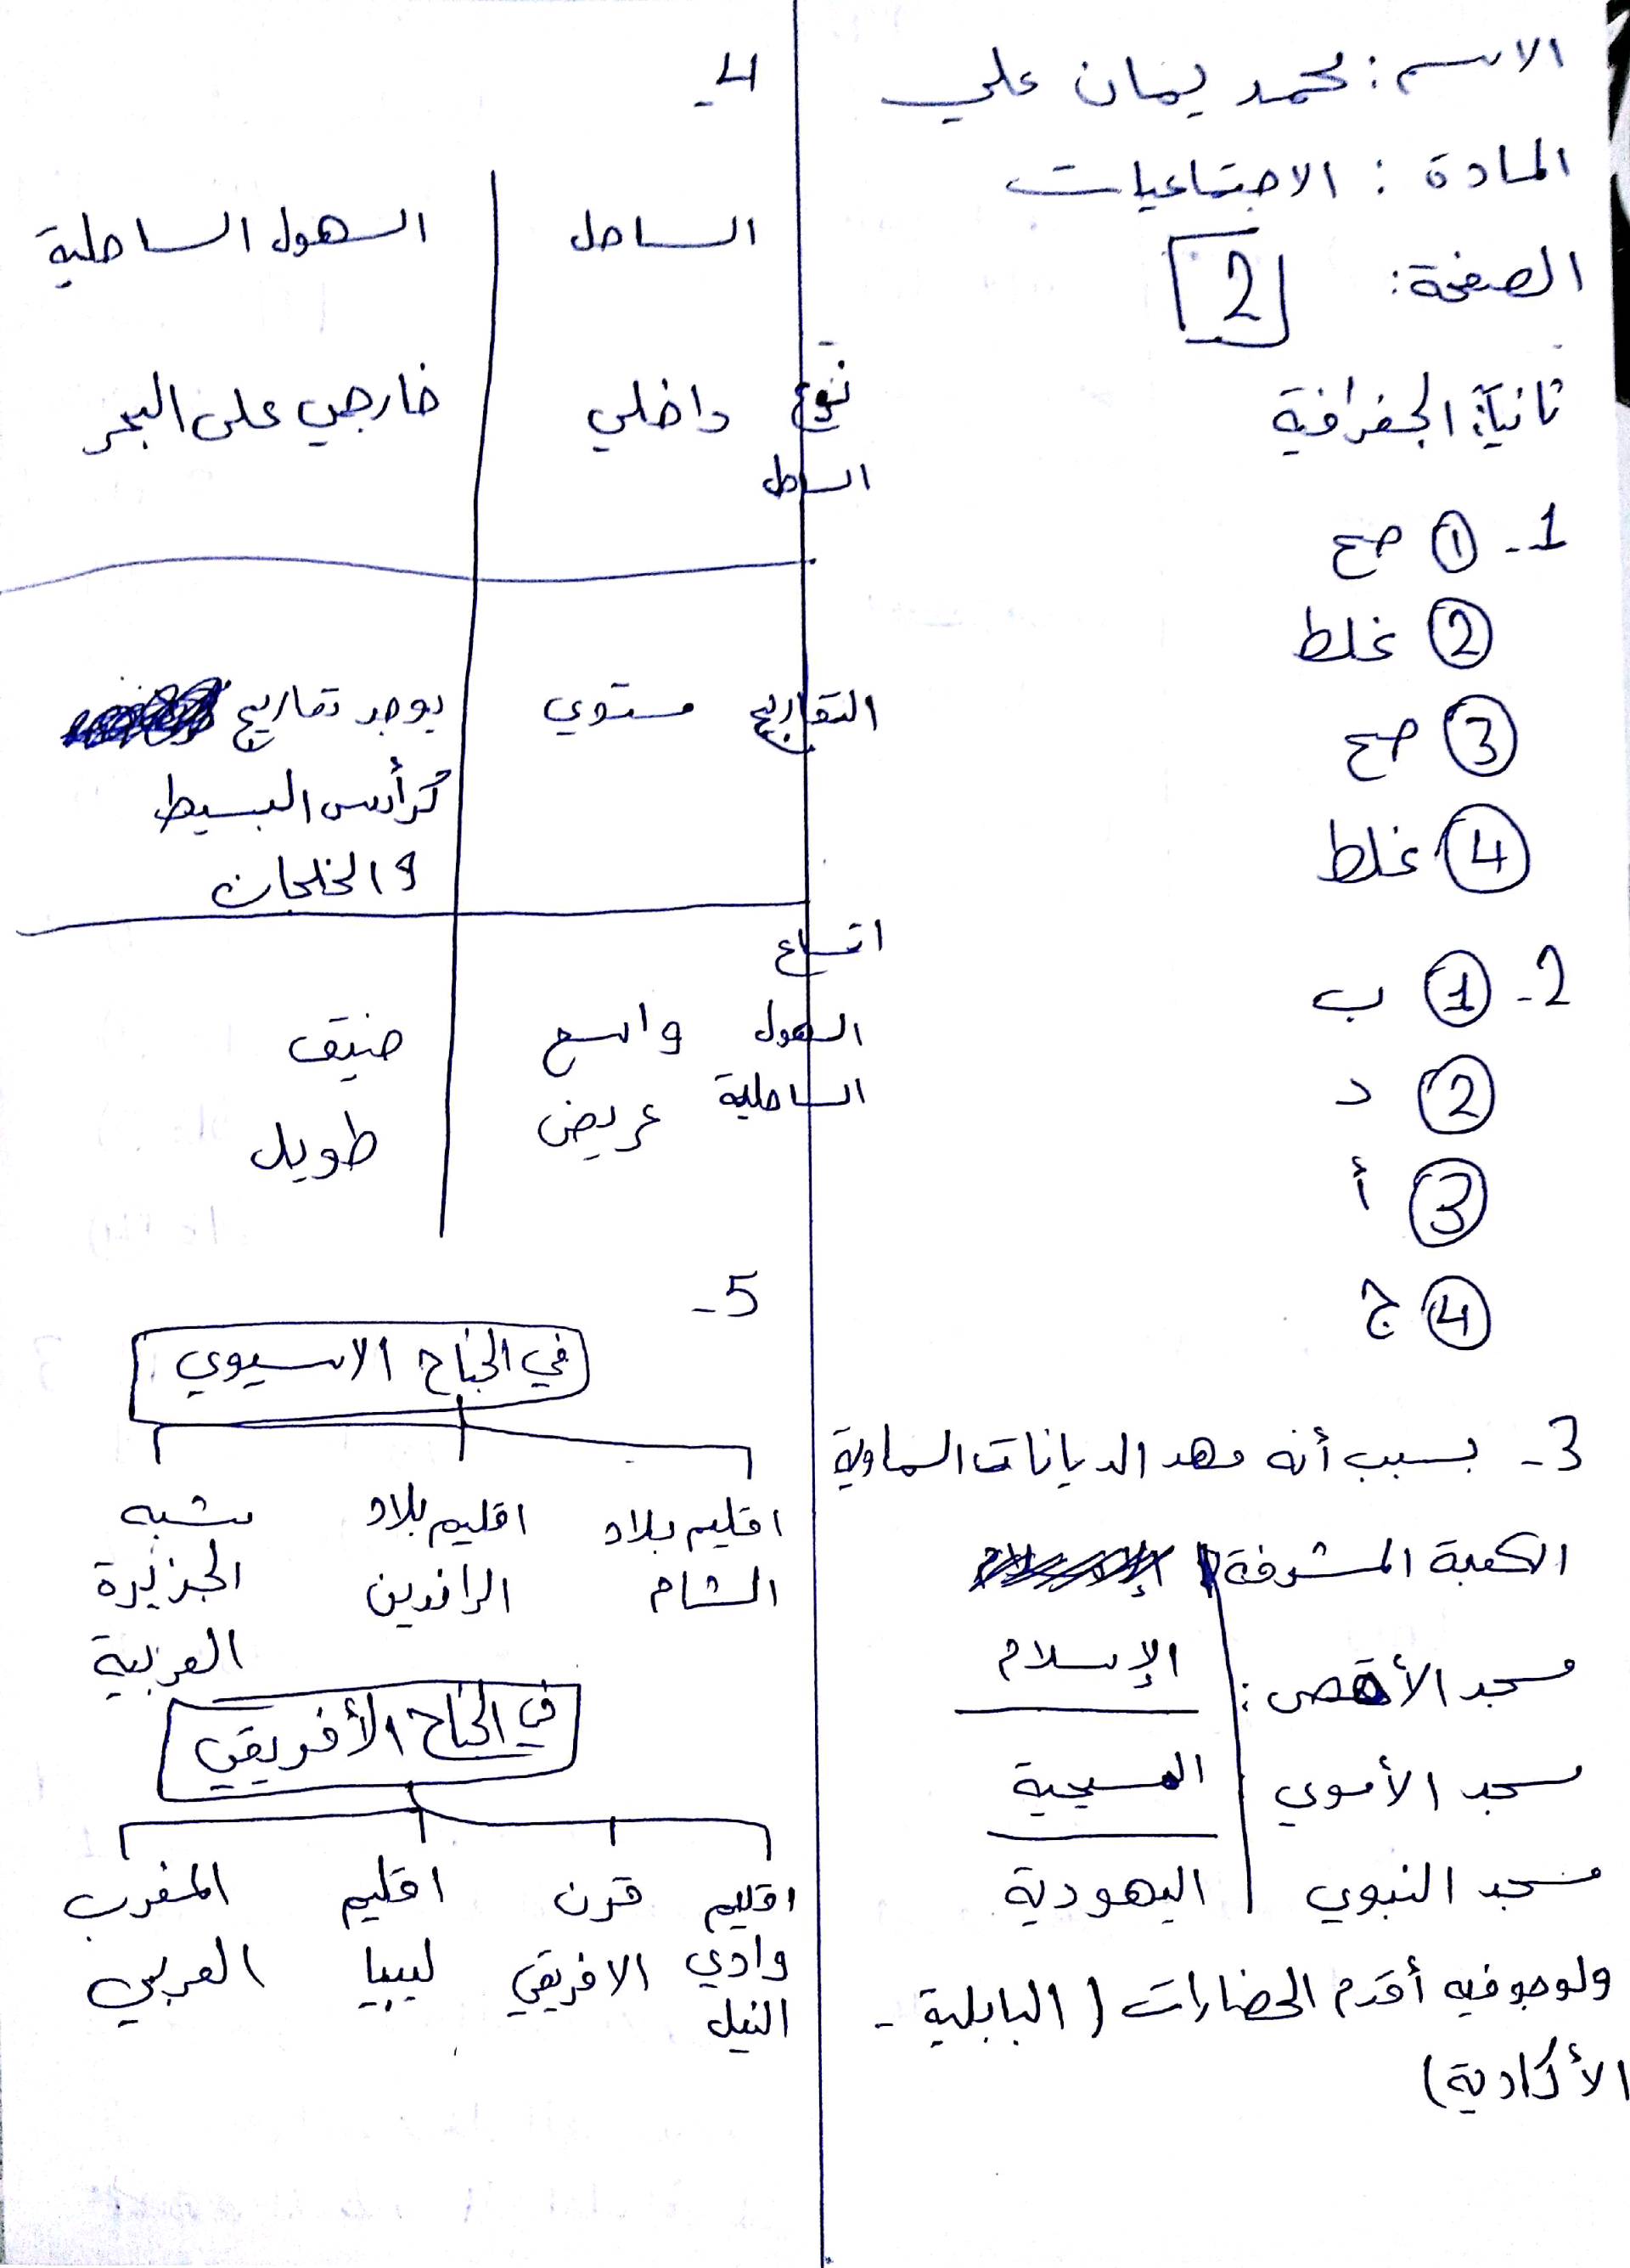 الاسم : محمد يمان علي
المادة : الاجتماعيات
الصفحة : 2
ثانياً: الجغرافية
1- ① صح
② غلط
③ صح
④ غلط
2- ① ب
② د
③ أ
④ ج
3- بسبب أنه مهد الديانات السماوية
الكعبة المشرفة
مسجد الأقصى : الإسلام
مسجد الأموي المسيحية
مسجد النبوي اليهودية
ولوجو فيه أقدم الحضارات ( البابلية -
الأكادية)
4-
الساحل السهول الساحلية
نوع داخلي خارجي على البحر
الساحل
التعاريج مستوي يوجد تعاريج
كرأس البسيط
والخلجان
اتساع
السهول واسع ضيق
الساحلية عريض طويل
5-
في الجناح الاسيوي
اقليم بلاد اقليم بلاد شبه
الشام الرافدين الجزيرة
العربية
في الجناح الأفريقي
اقليم قرن اقليم المغرب
وادي الافريقي ليبيا العربي
النيل